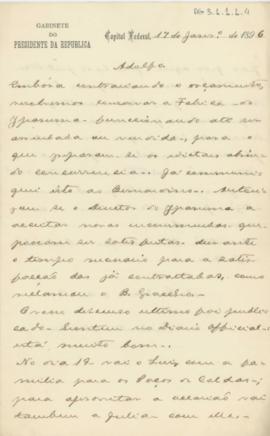 GABINETE
DO
PRESIDENTE DA REPUBLICA
Capital Federal, 17 de Janro. de 1896
Adolpho
Embora contrariando o orçamento,
resolvemos conservar a Fabrica do
Ypanema funccionando até ser
arrendada ou vendida, para o
que preparam-se os edictaes abrin-
do concurrencia. Já communi-
quei isto ao Bernardino. Autori-
zou-se o Director do Ypanema a
acceitar novas encommendas que
possam ser satisfeitas durante
o tempo necessario para a satis-
facção das já contractadas, como
reclamou o B.
O seu discurso ultimo foi publi-
cado hontem no Diario Official
está muito bom.
No dia 19 vai o Luiz com a fa-
milia para os Poços de Caldas;
para aproveitar a occasião vai
tambem a Julia com elle.